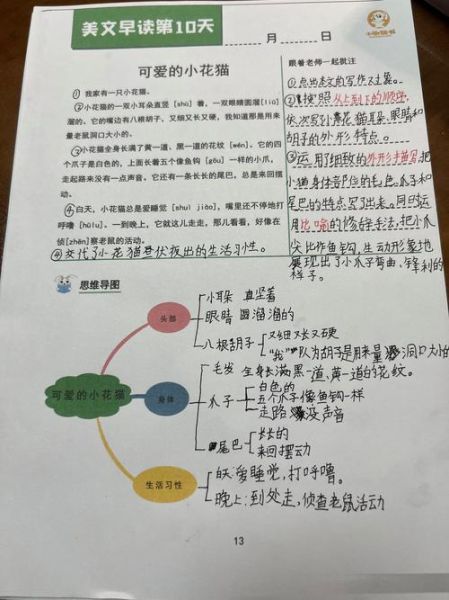 美文早读第10天
月 日
可爱的小花猫
①我家有一只小花猫。
②小花猫的一双小耳朵直竖[shù]着,一双眼睛圆溜[liū]
溜的。它的嘴边有八根胡子,又细又长又硬,我知道那是用来
量老鼠洞口大小的。
③小花猫全身长满了黄一道、黑一道的花纹[wén]。它的四
个爪子是白色的,上面长着五个像鱼钩[gōu]一样的小爪,
走起路来没有一点声音。它还有一条长长的尾巴,总是来回摆
动。
④白天,小花猫总是爱睡觉[shuì jiào],嘴里还不停地打
呼噜[hūlu]。一到晚上,它就这儿走走,那儿看看,好像在
侦[zhēn]察老鼠的活动。
④交代了小花猫昼伏夜出的生活习性。
跟着老师一起批注
①点出本文的写作对象。
②按照从上到下的顺序,
依次写小花猫耳朵、眼睛和
胡子的外形特点。
③运用了细致的外形描写,把
小猫身体各部位的毛色、爪子和
尾巴的特点写了出来。同时运
用比喻的修辞手法,把小爪
尖比作鱼钩,生动形象地
展现出了小爪子弯曲、锋利的
样子。
思维导图
可爱的小花猫
头部
小耳朵 直竖着
眼睛 圆溜溜的
八根胡子
又细又长又硬
"我"以为胡子是用来量老鼠洞口大小的
身体
毛发 全身长满黑一道,黄一道的花纹。
爪子
白色的
五个爪子像鱼钩一样
走路没声音
尾巴
长长的
来回摆动
生活习性
白天:爱睡觉,打呼噜。
晚上:到处走,侦查老鼠活动
13